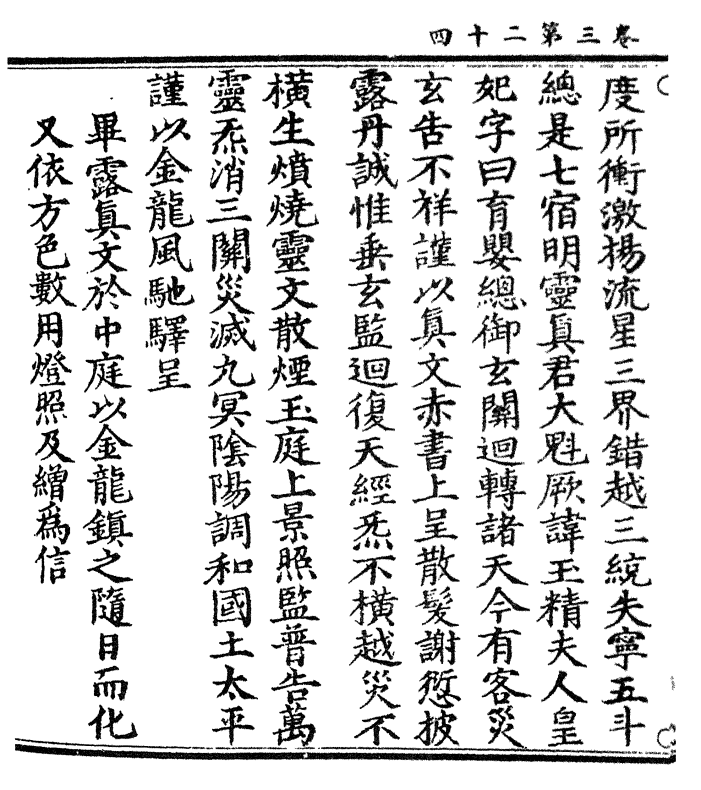 卷三第二十四
度所衝激揚流星三界錯越三統失寧五斗
總是七宿明靈真君大魁厥諱玉精夫人皇
妃字曰育嬰總御玄關迴轉諸天今有客災
玄告不祥謹以真文赤書上呈散髮謝愆披
露丹誠惟垂玄監迴復天經炁不橫越災不
橫生燌燒靈文散煙玉庭上景照監普告萬
靈炁消三關災滅九冥陰陽調和國土太平
謹以金龍風馳驛呈
畢露真文於中庭以金龍鎮之隨日而化
又依方色數用燈照及繒為信